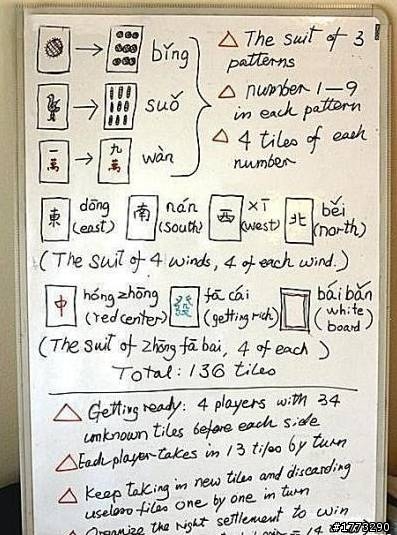 bǐng
△ The suit of 3
patterns
suǒ
△ number 1-9
in each pattern
一萬 → 九萬 wàn
△ 4 tiles of each
number
東 dōng (east) 南 nán (south) 西 xī (west) 北 běi (north)
(The suit of 4 winds, 4 of each wind.)
中 hóng zhōng (red center) 發 fā cái (getting rich) bái bǎn (white board)
(The suit of zhōng fā bai, 4 of each)
Total: 136 tiles
△ Getting ready: 4 players with 34
unknown tiles before each side
△ Each player takes in 13 tiles by turn
△ Keep taking in new tiles and discarding
useless tiles one by one in turn
△ Organize the right settlement to win
= 14
#1773290